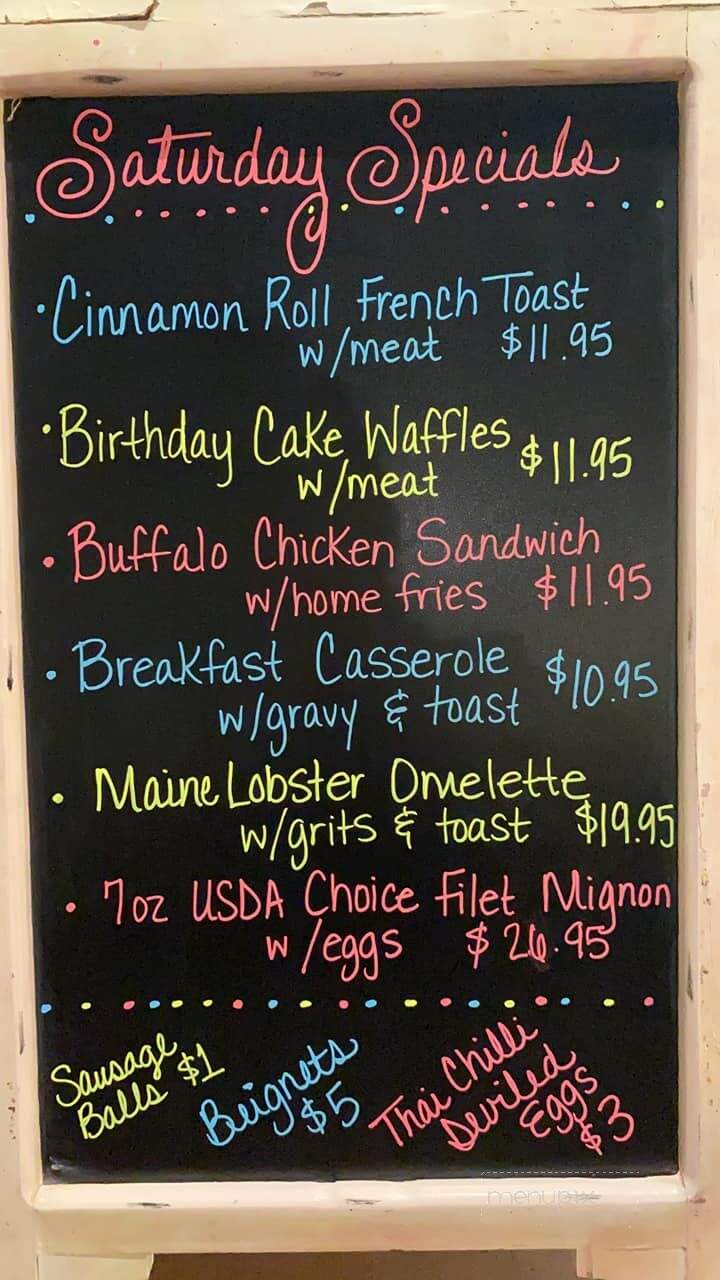 Saturday Specials
• Cinnamon Roll French Toast
w/meat $11.95
• Birthday Cake Waffles $11.95
w/meat
• Buffalo Chicken Sandwich
w/home fries $11.95
• Breakfast Casserole $10.95
w/gravy & toast
• Maine Lobster Omelette
w/grits & toast $19.95
• 7oz USDA Choice Filet Mignon
w/eggs $26.95
Sausage
Balls $1
Beignets
$5
Thai Chilli
Deviled
Eggs
$3
menupix